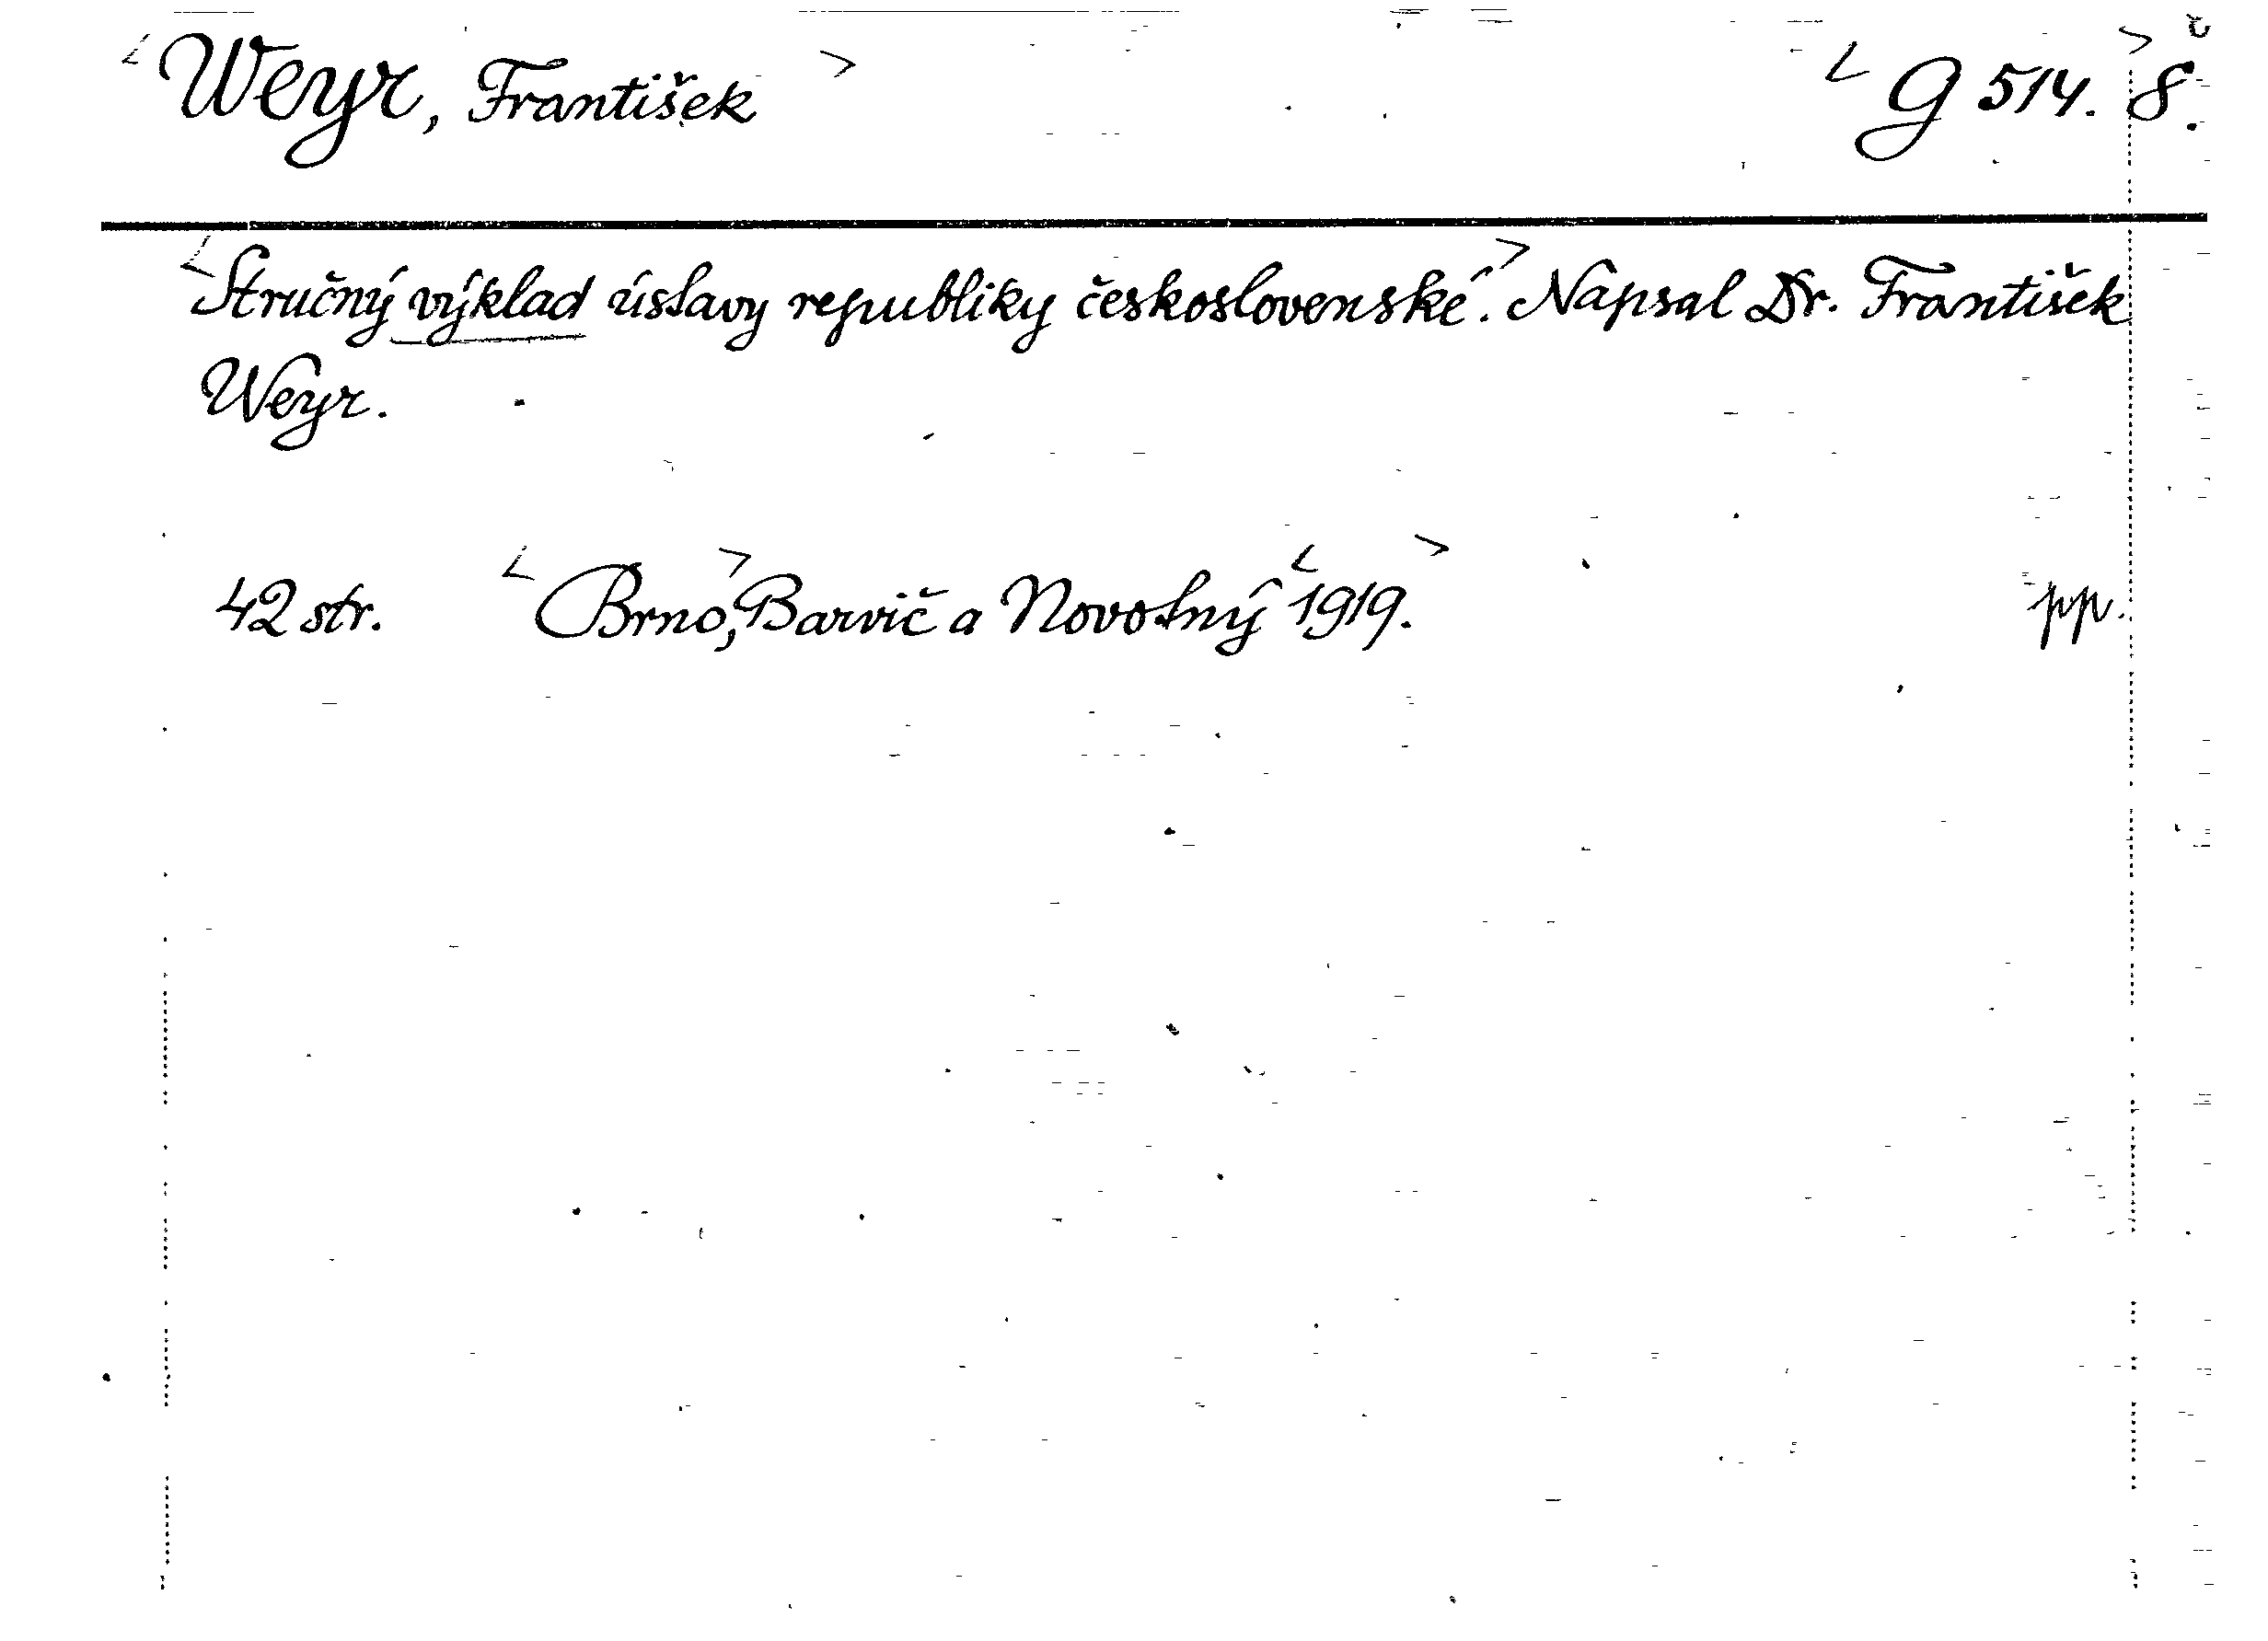 Weyr, František G 514. 8.
Stručný výklad ústavy republiky československé. Napsal Dr. František
Weyr.
42 str. Brno, Barvič a Novotný 1919. pp.